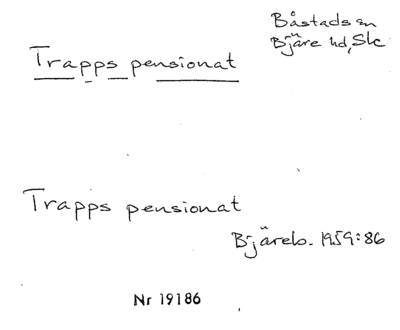 Båstads sn
Bjäre hd, Sk
Trapps pensionat
Trapps pensionat
Bjäreb. 1959:86
Nr 19186